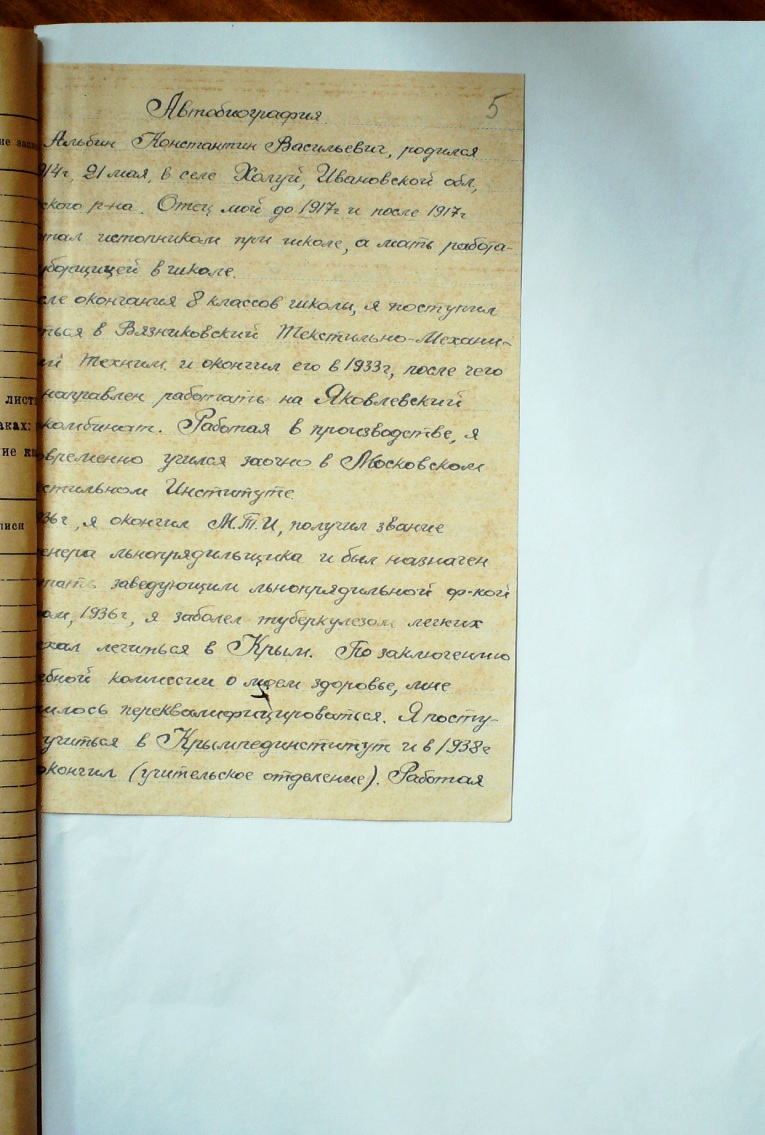 5
Автобиография
Альбин Константин Васильевич, родился
914г, 21 мая, в селе Холуй, Ивановской обл,
ского р-на. Отец мой до 1917г и после 1917г
отал истопником при школе, а мать работа-
уборщицей в школе.
сле окончания 8 классов школы, я поступил
ться в Вязниковский Текстильно-Механи-
ий Техним. и окончил его в 1933г, после чего
направлен работать на Яковлевский
комбинат. Работая в производстве, я
овременно учился заочно в Московском
стильном Институте.
936г, я окончил М.Т.И, получил звание
енера льнопрядильщика и был назначен
отать заведующим льнопрядильной ф-кой
ом, 1936г, я заболел туберкулезом легких
ехал лечиться в Крым. По заключению
ебной комиссии о моем здоровье, мне
илось переквалифицироваться. Я посту-
учиться в Крымпединститут и в 1938г
окончил (учительское отделение). Работая
лист
аках:
ие к
писи